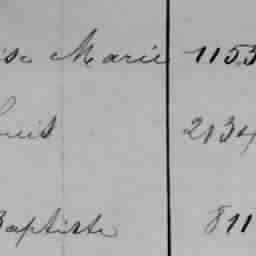 ise Marie 1153
ouis 2134
Baptiste 811